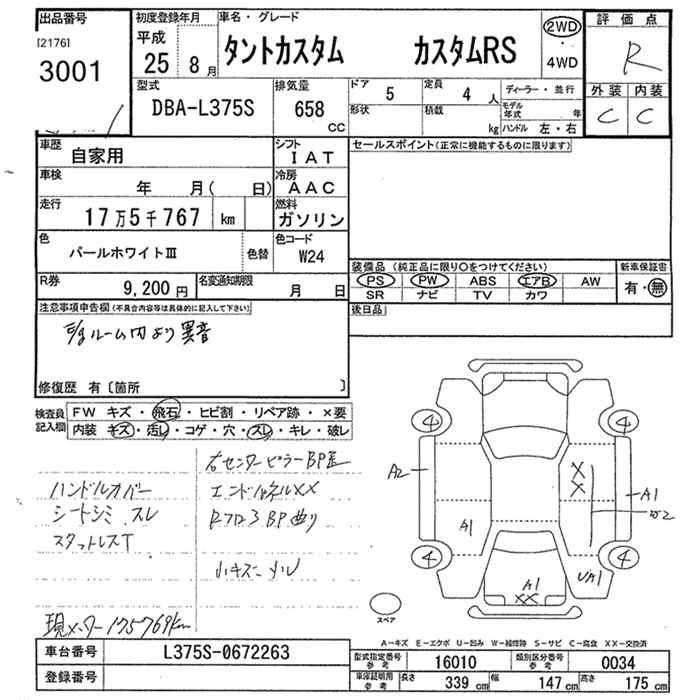 出品番号
[2176]
3001
初度登録年月
平成
25
8月
車名・グレード
タントカスタム カスタムRS
2WD
・
4WD
評価点
R
外装 内装
C C
型式
DBA-L375S
排気量
658
CC
ドア
5
定員
4人
形状
積載
kg
ディーラー・並行
モデル年式 年
ハンドル 左・右
車歴
自家用
シフト
IAT
車検
年 月( 日)
冷房
AAC
走行
17万5千767 km
燃料
ガソリン
色
パールホワイトⅢ
色替
色コード
W24
R券
9,200円
名変通知期限
月 日
セールスポイント(正常に機能するものに限ります)
装備品(純正品に限り○をつけてください)
PS PW ABS エアB AW
SR ナビ TV カワ
新車保証書
有・無
後日品
注意事項申告欄(不具合内容等は具体的に記入して下さい)
E/gルーム内より異音
修復歴 有〔箇所 〕
検査員記入欄
FW キズ・飛石・ヒビ割・リペア跡・×要
内装 キズ・汚し・コゲ・穴・スレ・キレ・破レ
右センターピラーBP
ハンドルカバー
エンドパネルXX
シートシミ スレ
RフロアBP曲り
スタットレスT
小キズ
現メーター175769km
4 4
A2
XX
A1
A1
4 4
UA1
A1
XX
スペア
A-キズ E-エクボ U-凹み W-補修跡 S-サビ C-腐食 XX-交換済
車台番号
L375S-0672263
登録番号
型式指定番号
参考
16010
類別区分番号
参考
0034
車庫証明用
参考
長さ
339 cm
幅
147 cm
高さ
175 cm